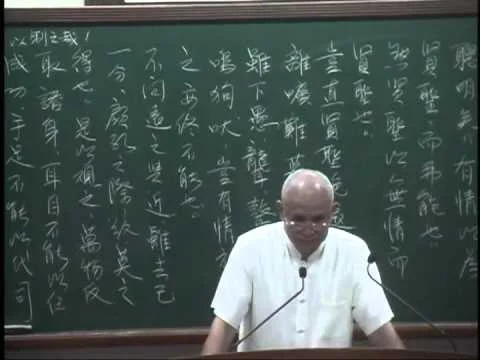 聰明矣。有情以為
賢聖而弗能也。
然賢聖以無情而
賢聖也。
豈直賢聖絕遠
離曠難
雖下愚聾瞽
鳴狗吠,豈有情於
之,亦終不能也。
不問遠之與近,雖去己
一分,顏孔之際,終莫之
得也。是以觀之,萬物反
取諸身,耳目不能以任
成功,手足不能以代司
以測之哉!